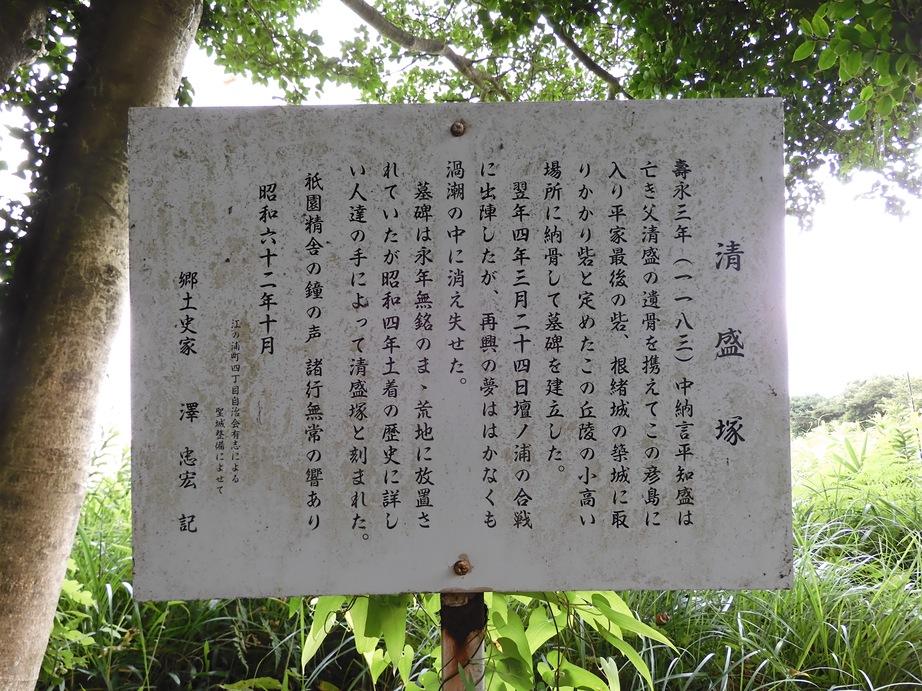 清盛塚
壽永三年(一一八三)中納言平知盛は
亡き父清盛の遺骨を携えてこの彦島に
入り平家最後の砦、根緒城の築城に取
りかかり砦と定めたこの丘陵の小高い
場所に納骨して墓碑を建立した。
翌年四年三月二十四日壇ノ浦の合戦
に出陣したが、再興の夢ははかなくも
渦潮の中に消え失せた。
墓碑は永年無銘のまゝ荒地に放置さ
れていたが昭和四年土着の歴史に詳し
い人達の手によって清盛塚と刻まれた。
祇園精舎の鐘の声 諸行無常の響あり
昭和六十二年十月
江の浦町四丁目自治会有志による
聖域整備によせて
郷土史家 澤 忠宏 記